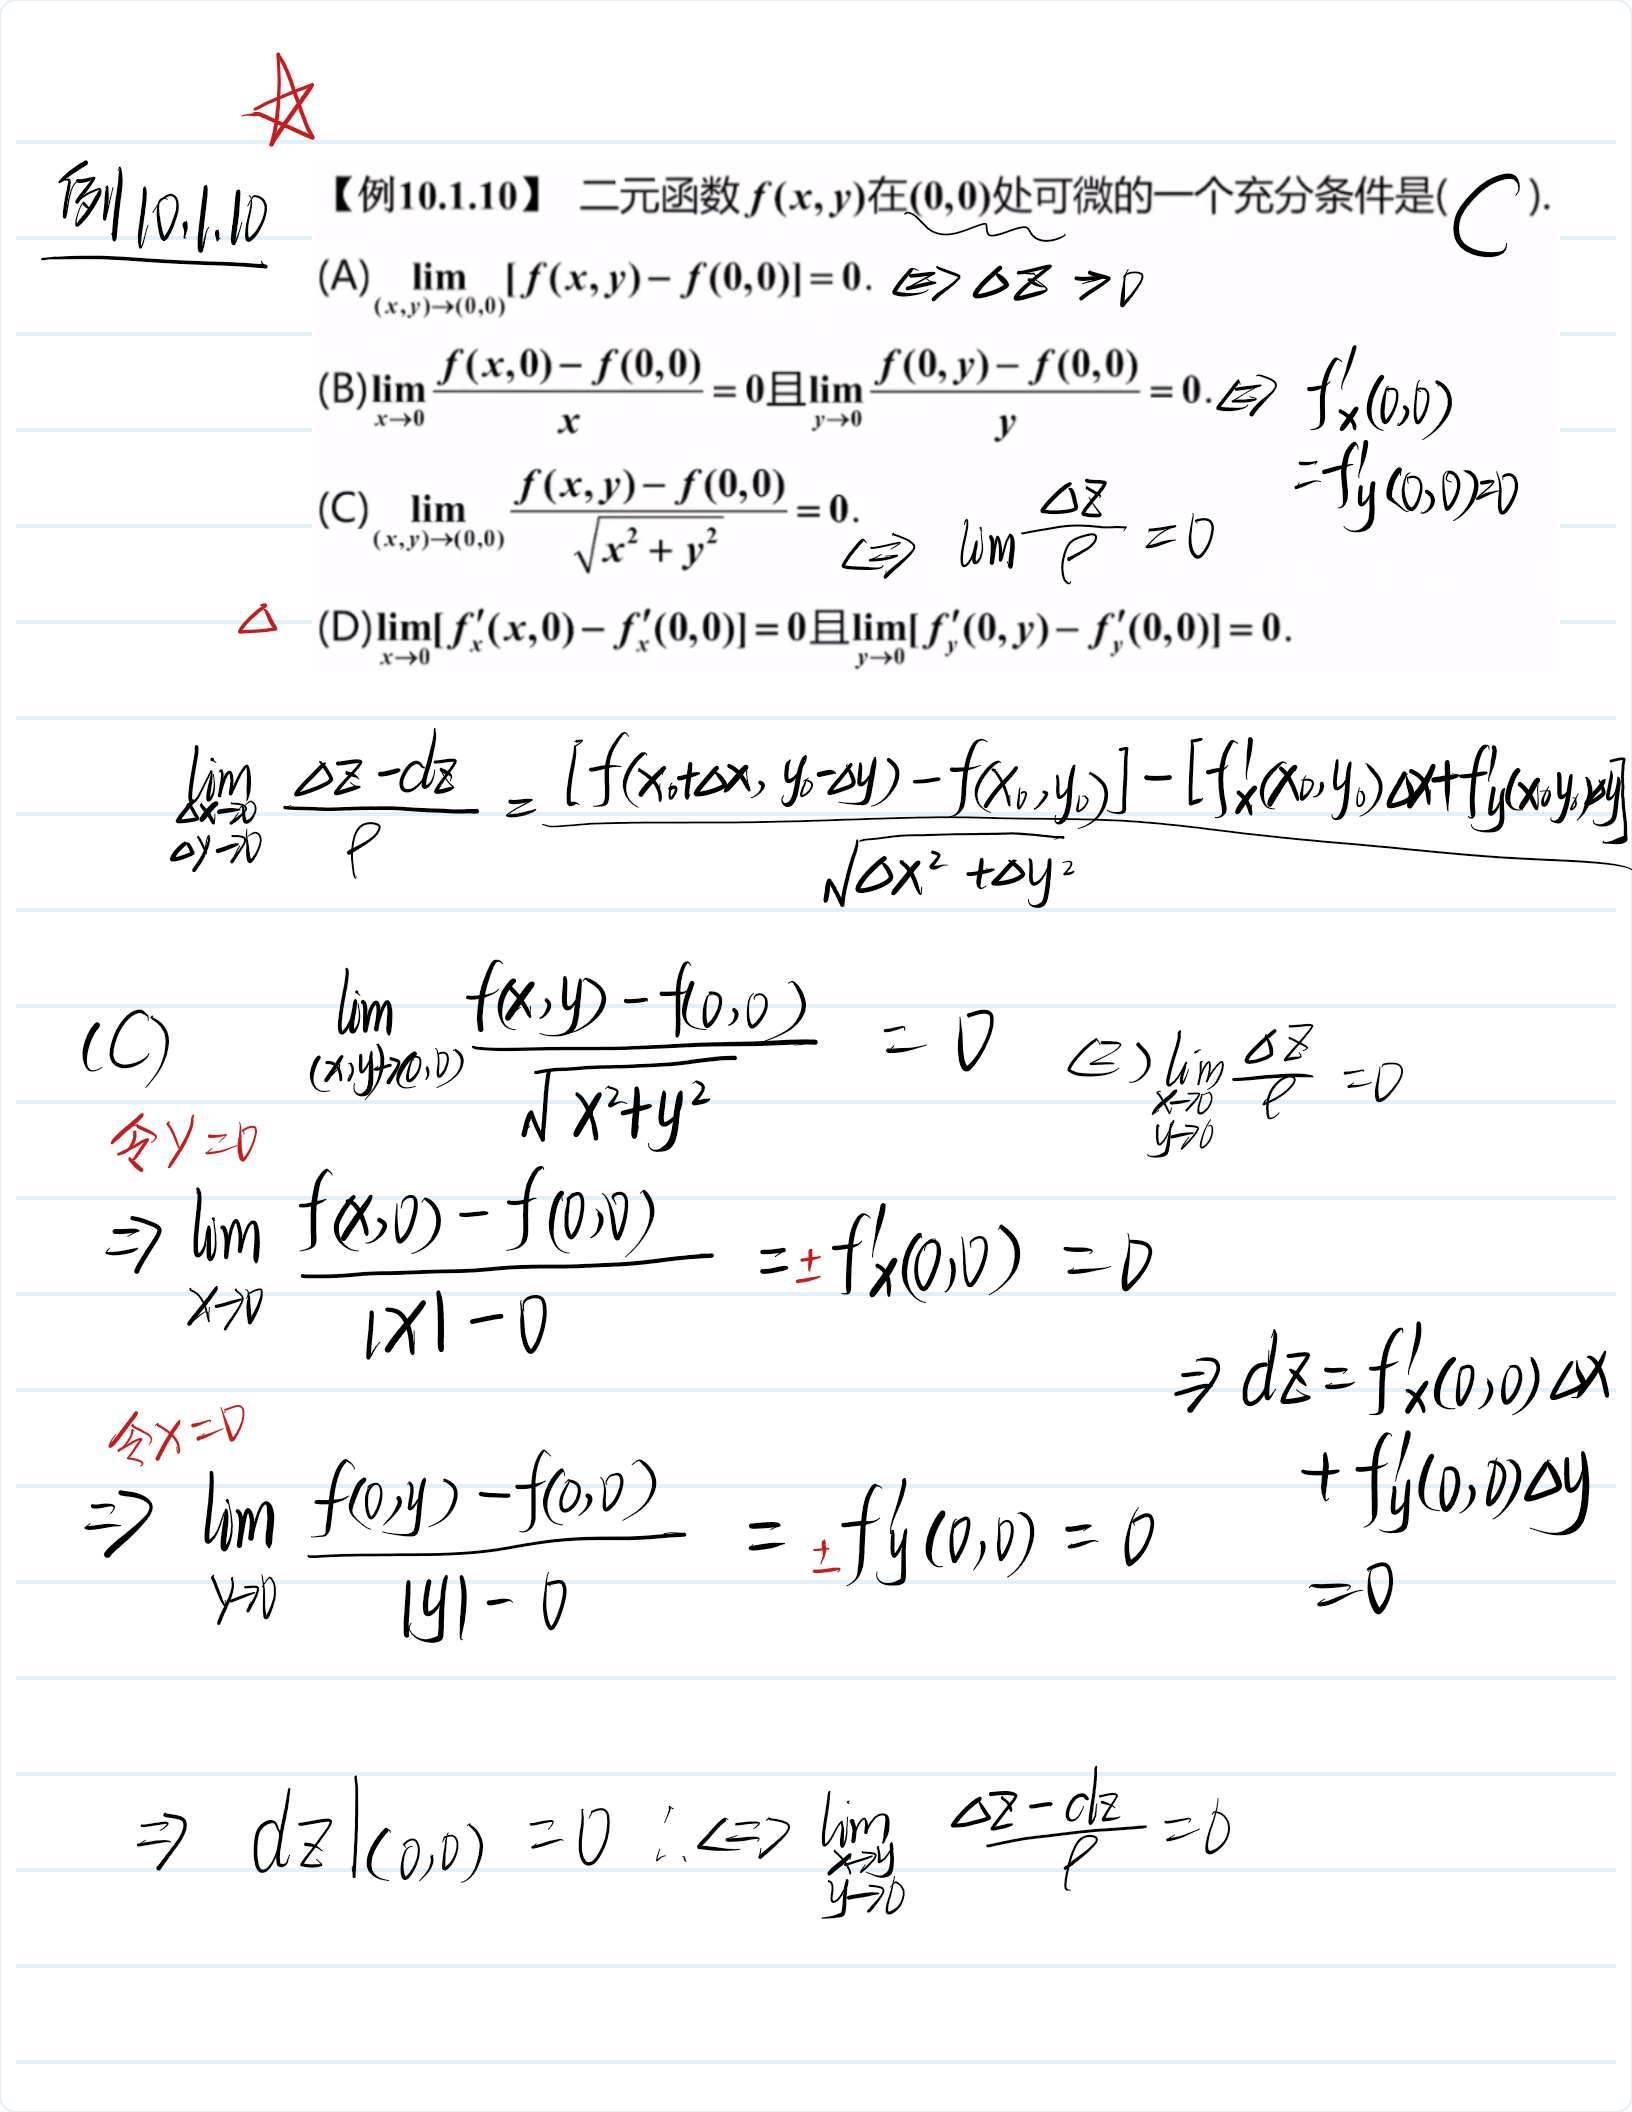 例10.1.10
【例10.1.10】 二元函数 f(x,y)在(0,0)处可微的一个充分条件是( C ).
(A) lim_{(x,y)→(0,0)} [f(x,y)−f(0,0)]=0. <=> Δz→0
(B) lim_{x→0} (f(x,0)−f(0,0))/x = 0且lim_{y→0} (f(0,y)−f(0,0))/y = 0. <=> f'x(0,0)
=f'y(0,0)=0
(C) lim_{(x,y)→(0,0)} (f(x,y)−f(0,0))/√(x²+y²) = 0. <=> lim Δz/ρ = 0
Δ (D) lim_{x→0} [f'x(x,0)−f'x(0,0)]=0且lim_{y→0} [f'y(0,y)−f'y(0,0)]=0.
lim_{Δx→0 Δy→0} (Δz−dz)/ρ = ([f(x₀+Δx, y₀-Δy)−f(x₀,y₀)]−[f'x(x₀,y₀)Δx+f'y(x₀,y₀)Δy])/√(Δx²+Δy²)
(C) lim_{(x,y)→(0,0)} (f(x,y)−f(0,0))/√(x²+y²) = 0 <=> lim_{x→0 y→0} Δz/ρ =0
令y=0
=> lim_{x→0} (f(x,0)−f(0,0))/(|x|−0) = ±f'x(0,0) = 0
=> dz=f'x(0,0)Δx
令x=0
+f'y(0,0)Δy
=> lim_{y→0} (f(0,y)−f(0,0))/(|y|−0) = ±f'y(0,0) = 0
=0
=> dz|(0,0) =0 ∴ <=> lim_{x→y y→0} (Δz−dz)/ρ =0